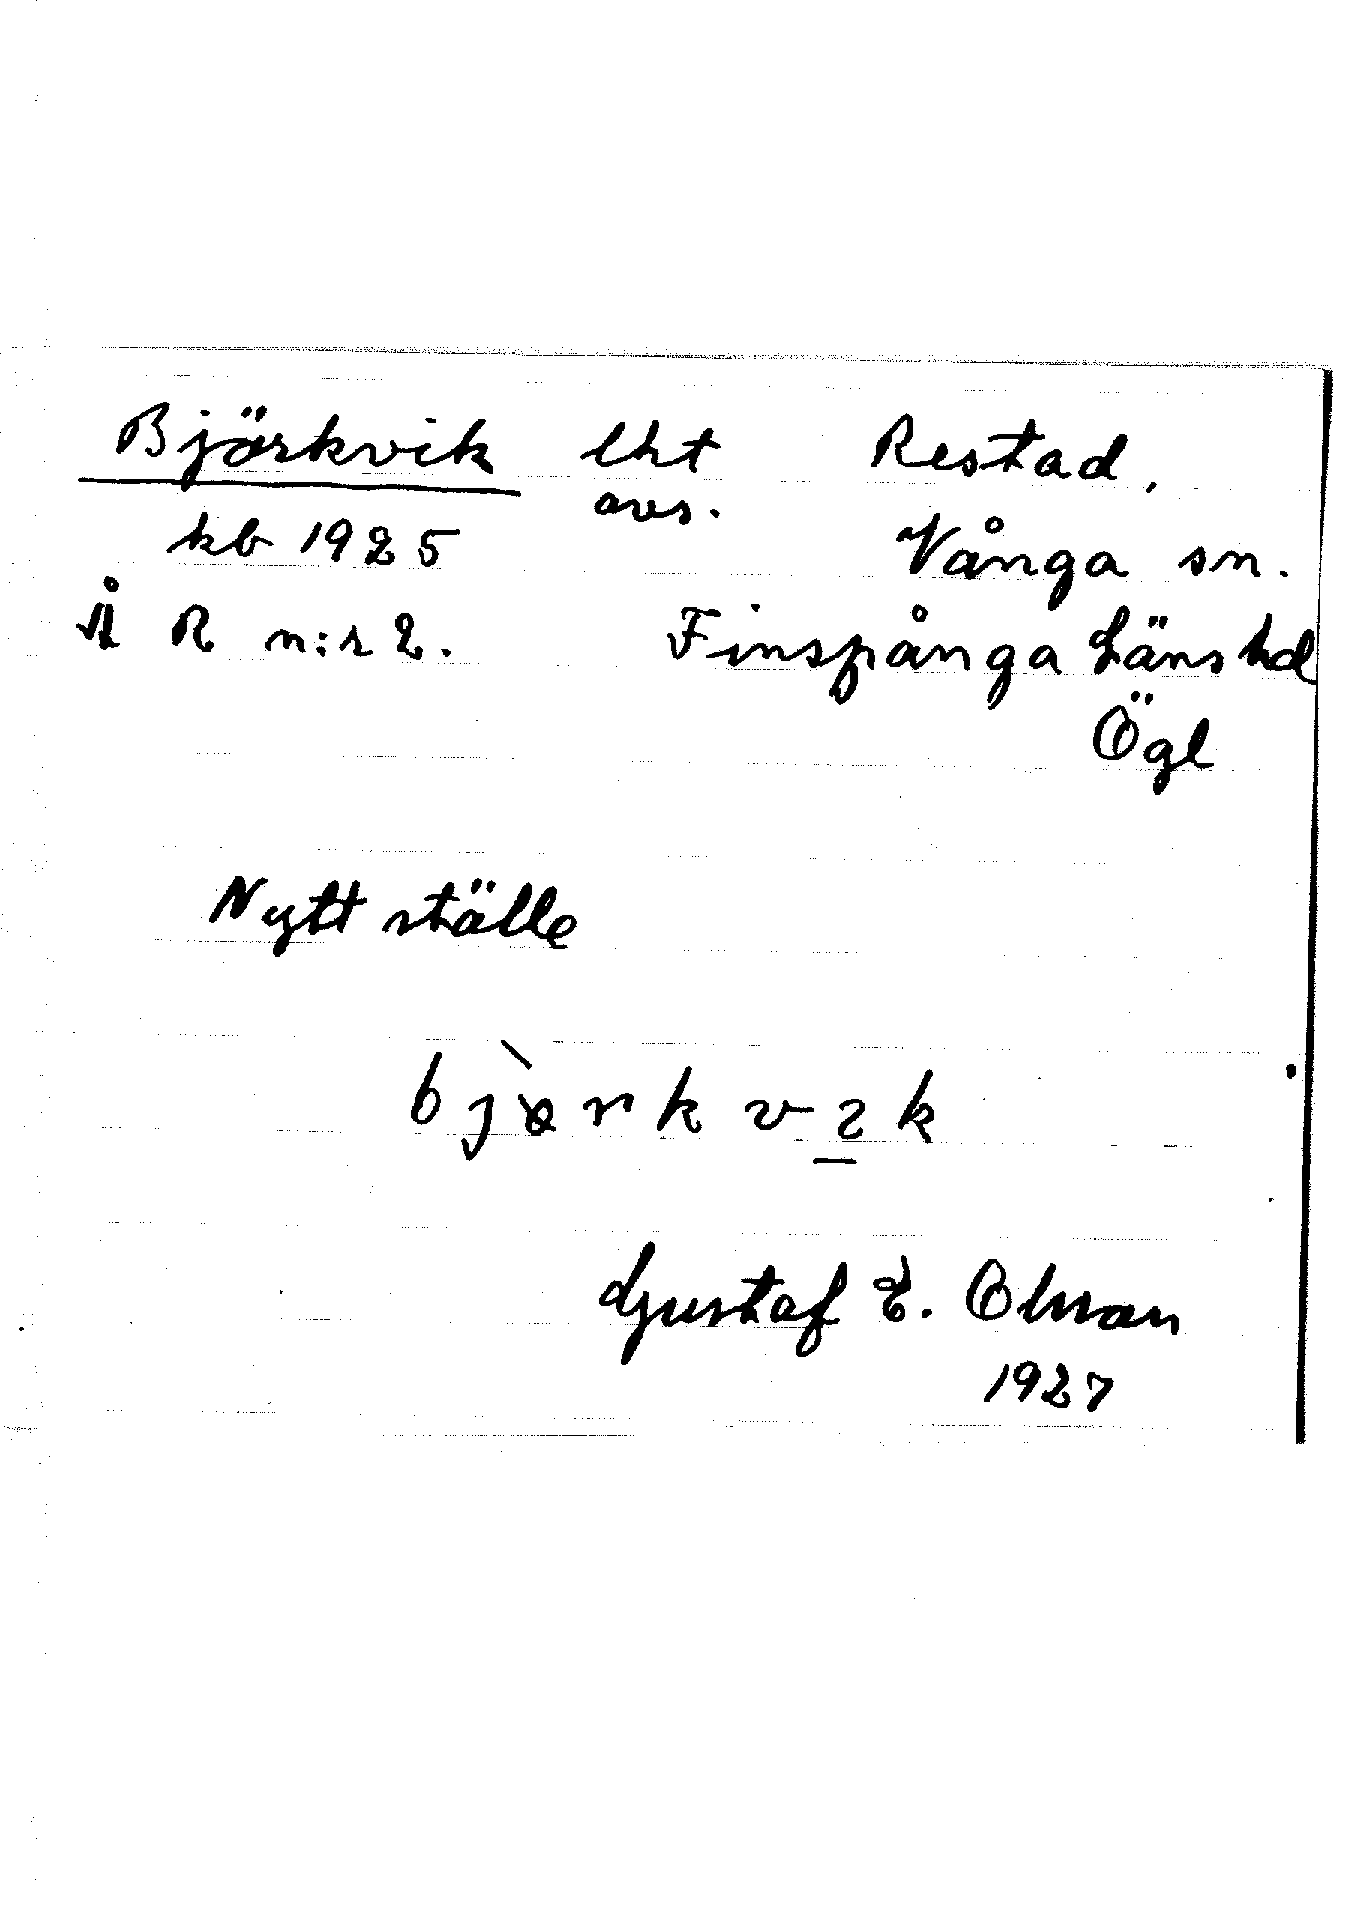 Björkvik lht Restad,
avs.
kb 1925 Vånga sn.
Å R n:r 2. Finspånga Länshd
Ögl
Nytt ställe
Gustaf E. Olsson
1927